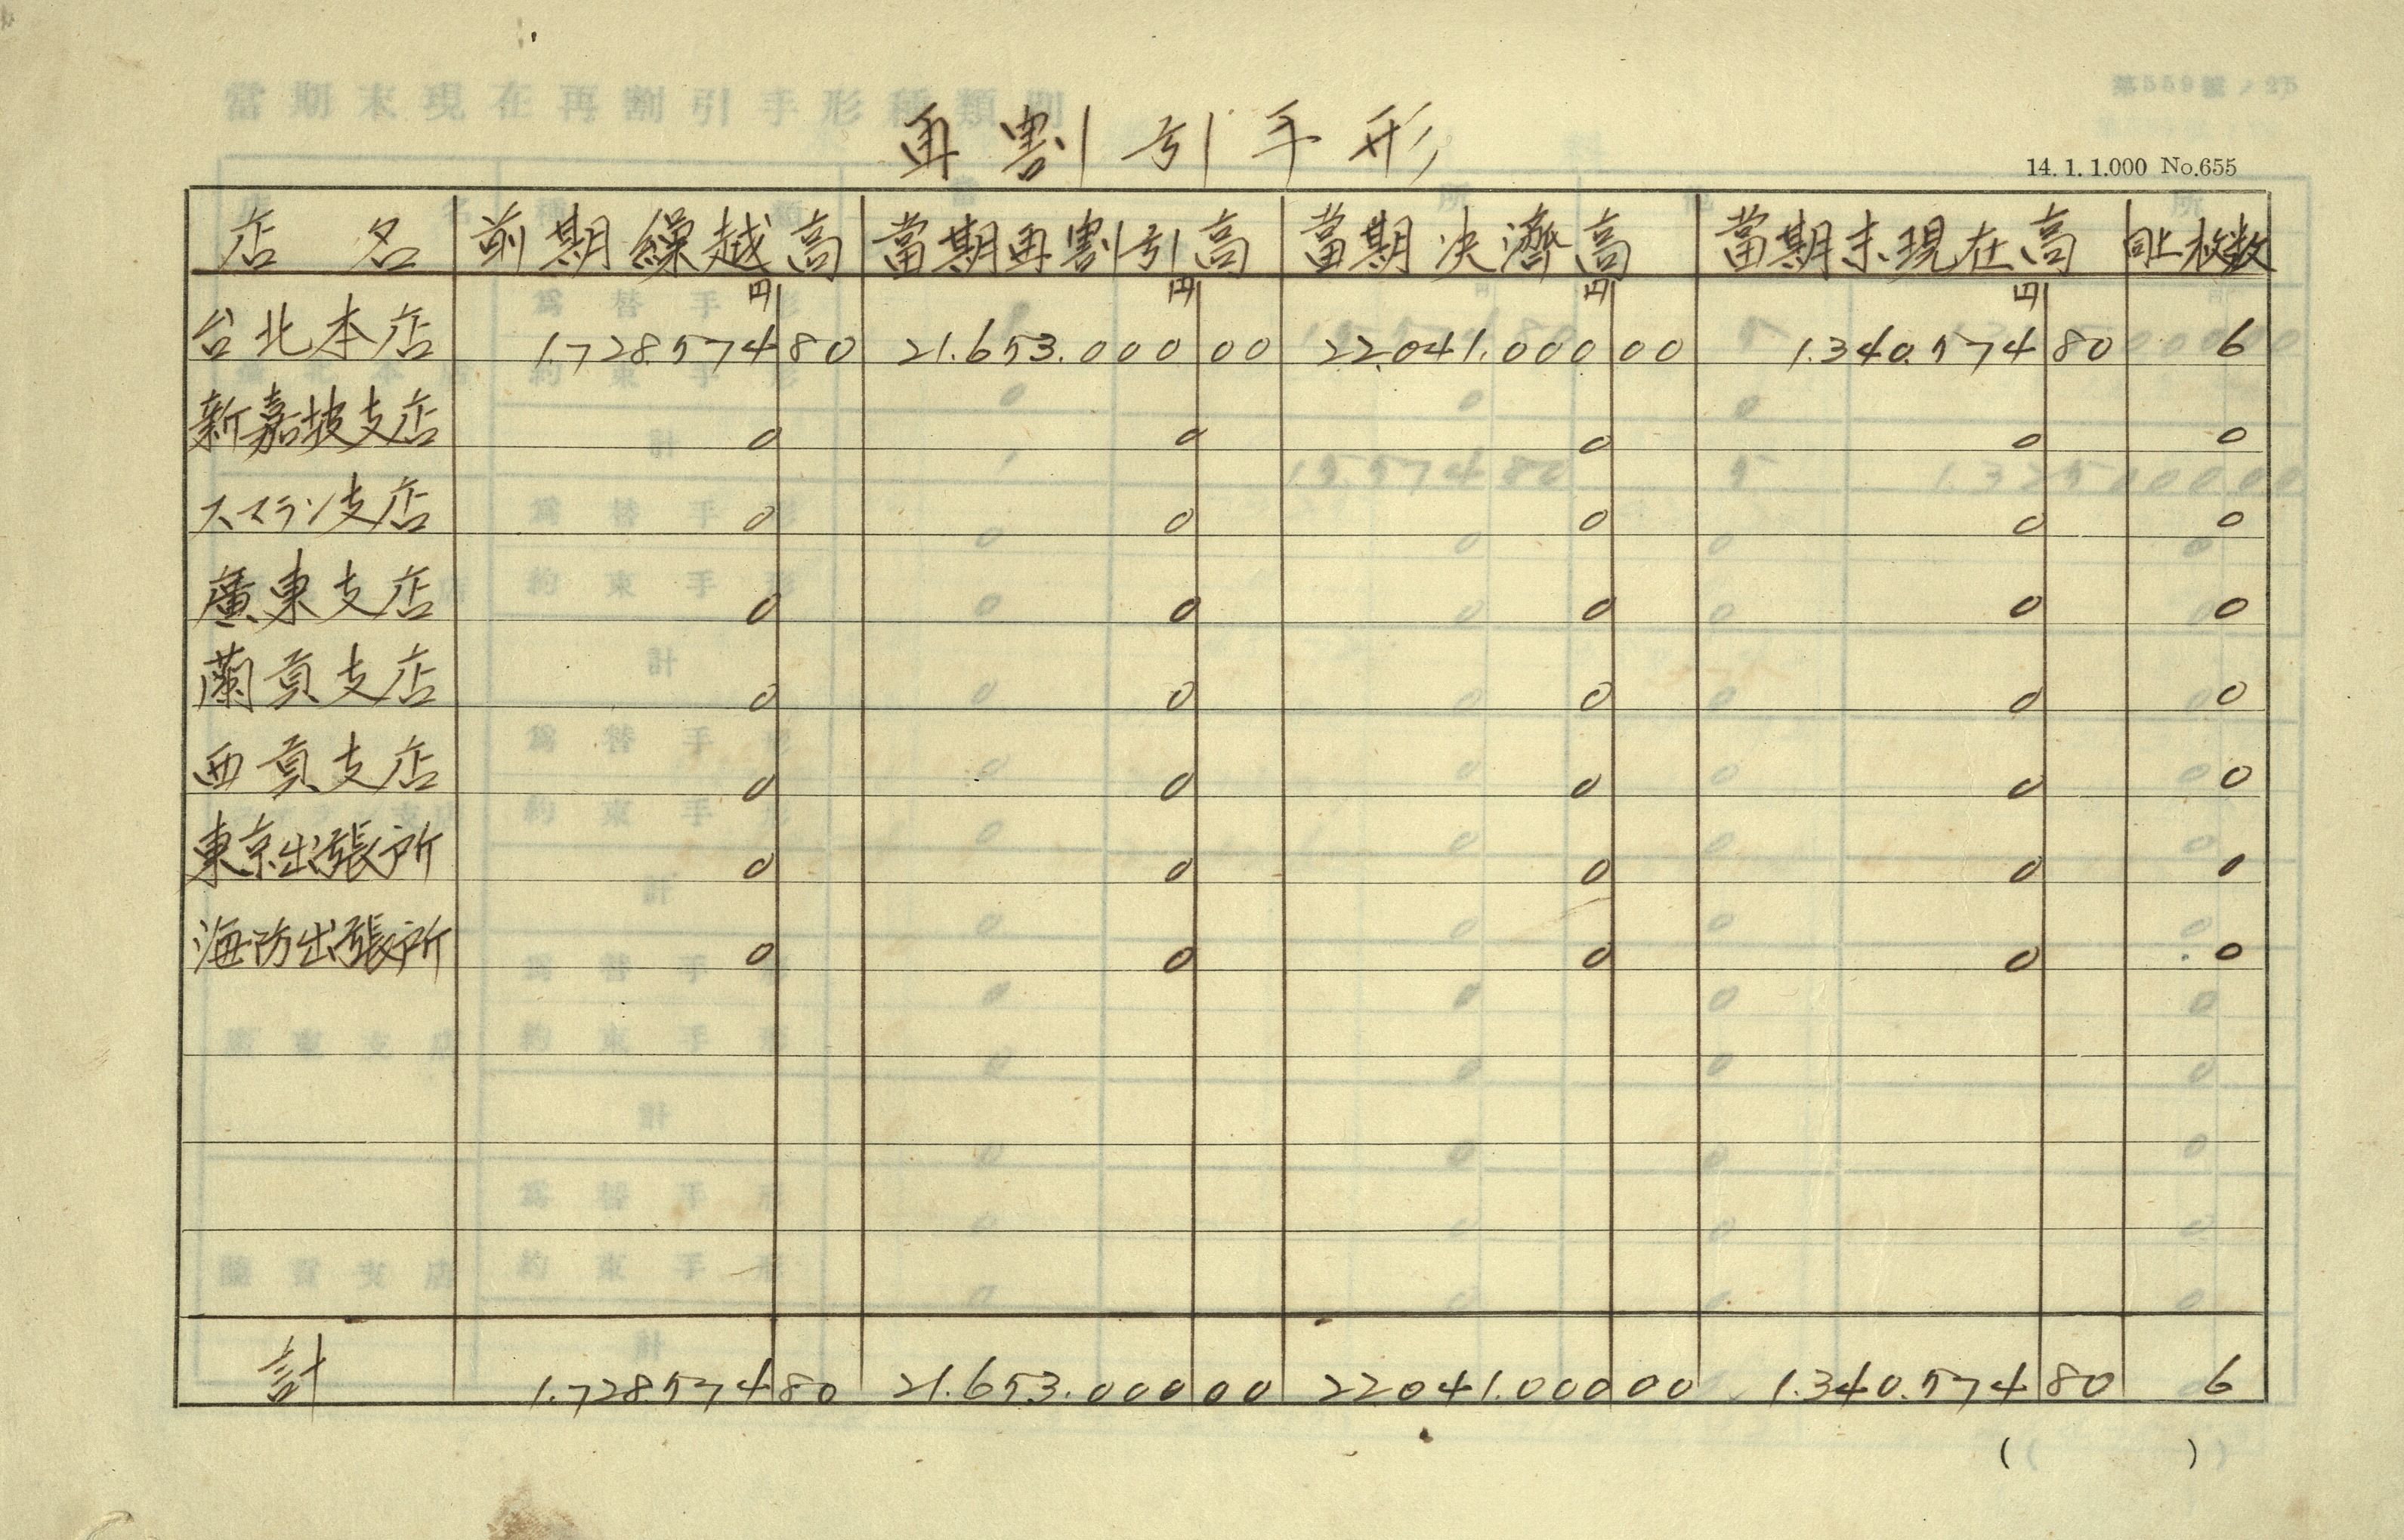 再割引手形
14. 1. 1.000 No.655
店名 前期繰越高 當期再割引高 當期決濟高 當期末現在高 同上枚数
円 円 円 円
台北本店 1.728.574 80 21.653.000 00 22.041.000 00 1.340.574 80 6
新嘉坡支店 0 0 0 0 0
スマラン支店 0 0 0 0 0
廣東支店 0 0 0 0 0
蘭貢支店 0 0 0 0 0
西貢支店 0 0 0 0 0
東京出張所 0 0 0 0 0
海防出張所 0 0 0 0 0
計 1.728.574 80 21.653.000 00 22.041.000 00 1.340.574 80 6
( )